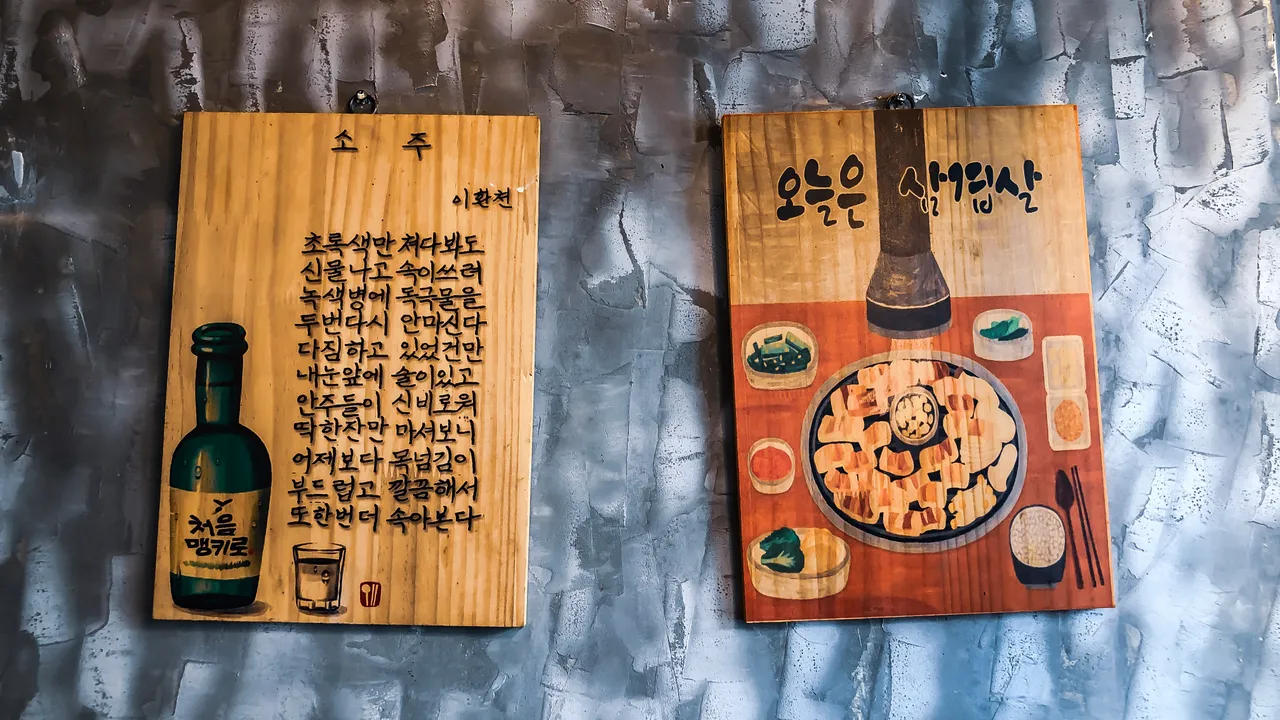 소 주
이환천
초록색만 쳐다봐도
신물나고 속이쓰려
녹색병에 독극물을
두번다시 안마신다
다짐하고 있었건만
내눈앞에 술이있고
안주들이 신비로워
딱한잔만 마셔보니
어제보다 목넘김이
부드럽고 깔끔해서
또한번더 속아본다
처음
맹키로
오늘은 삼겹살